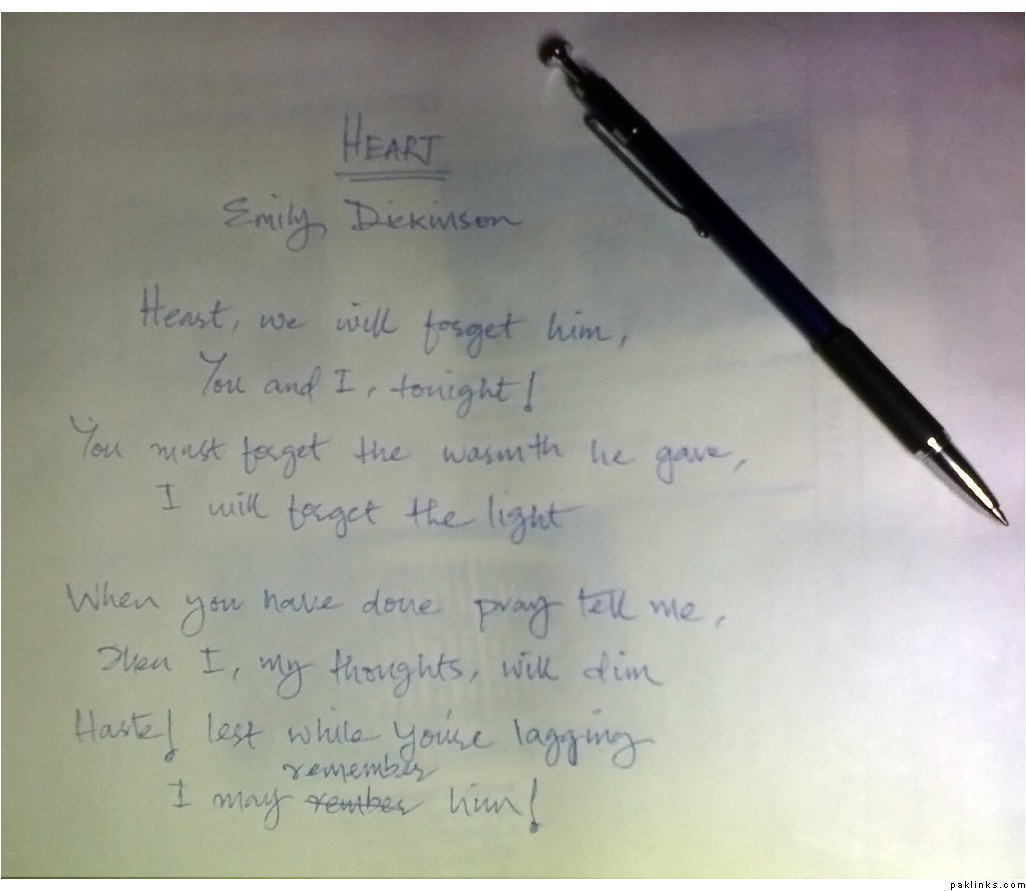 HEART
Emily Dickinson
Heart, we will forget him,
You and I, tonight!
You must forget the warmth he gave,
I will forget the light
When you have done pray tell me,
Then I, my thoughts, will dim
Haste! lest while you're lagging
remember
I may rember him!
paklinks.com